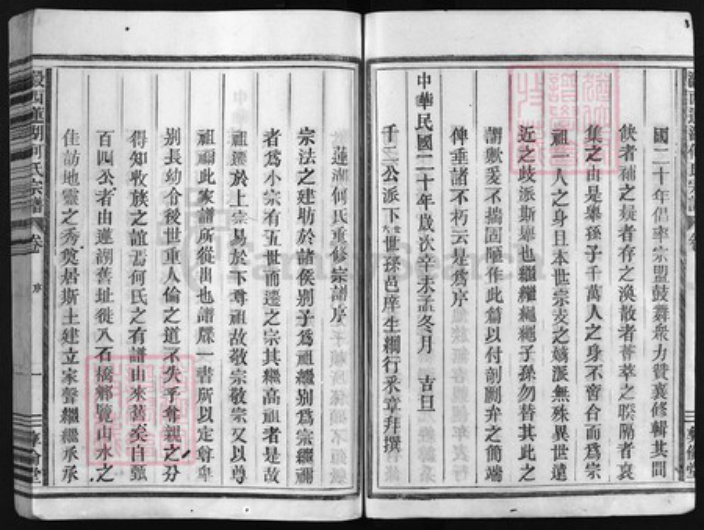 國二十年倡率宗盟鼓舞衆力贊襄修輯其間
缺者補之疑者存之渙散者薈萃之暌隔者裒
集之由是舉孫子千萬人之身不啻合而爲宗
祖一人之身且本世宗支之嫡派無殊異世遠
近之歧派斯舉也繼繼繩繩子孫勿替其此之
謝歟爰不揣固陋作此篇以付剞劂弁之簡端
俾垂諸不朽云是爲序
中華民國二十年歲次辛未孟冬月　吉旦
千二公派下世孫邑庠生綱行承章拜撰
蓮湖何氏重修宗譜序
宗法之建昉於諸侯别子爲祖繼别爲宗繼禰
者爲小宗有五世而遷之宗其繼高祖者是故
祖遷於上宗易於下尊祖故敬宗敬宗又以尊
祖禰此家譜所從出也譜牒一書所以定尊卑
别長幼令後世重人倫之道不失乎尊親之分
得知收族之誼焉何氏之有譜由來舊矣自顯
百四公者由蓮湖舊址徙入石橋鄉覽山水之
佳訪地靈之秀奠居斯土建立家聲繼繼承承
澱西蓮湖何氏宗譜
卷
序
一
彝倫堂